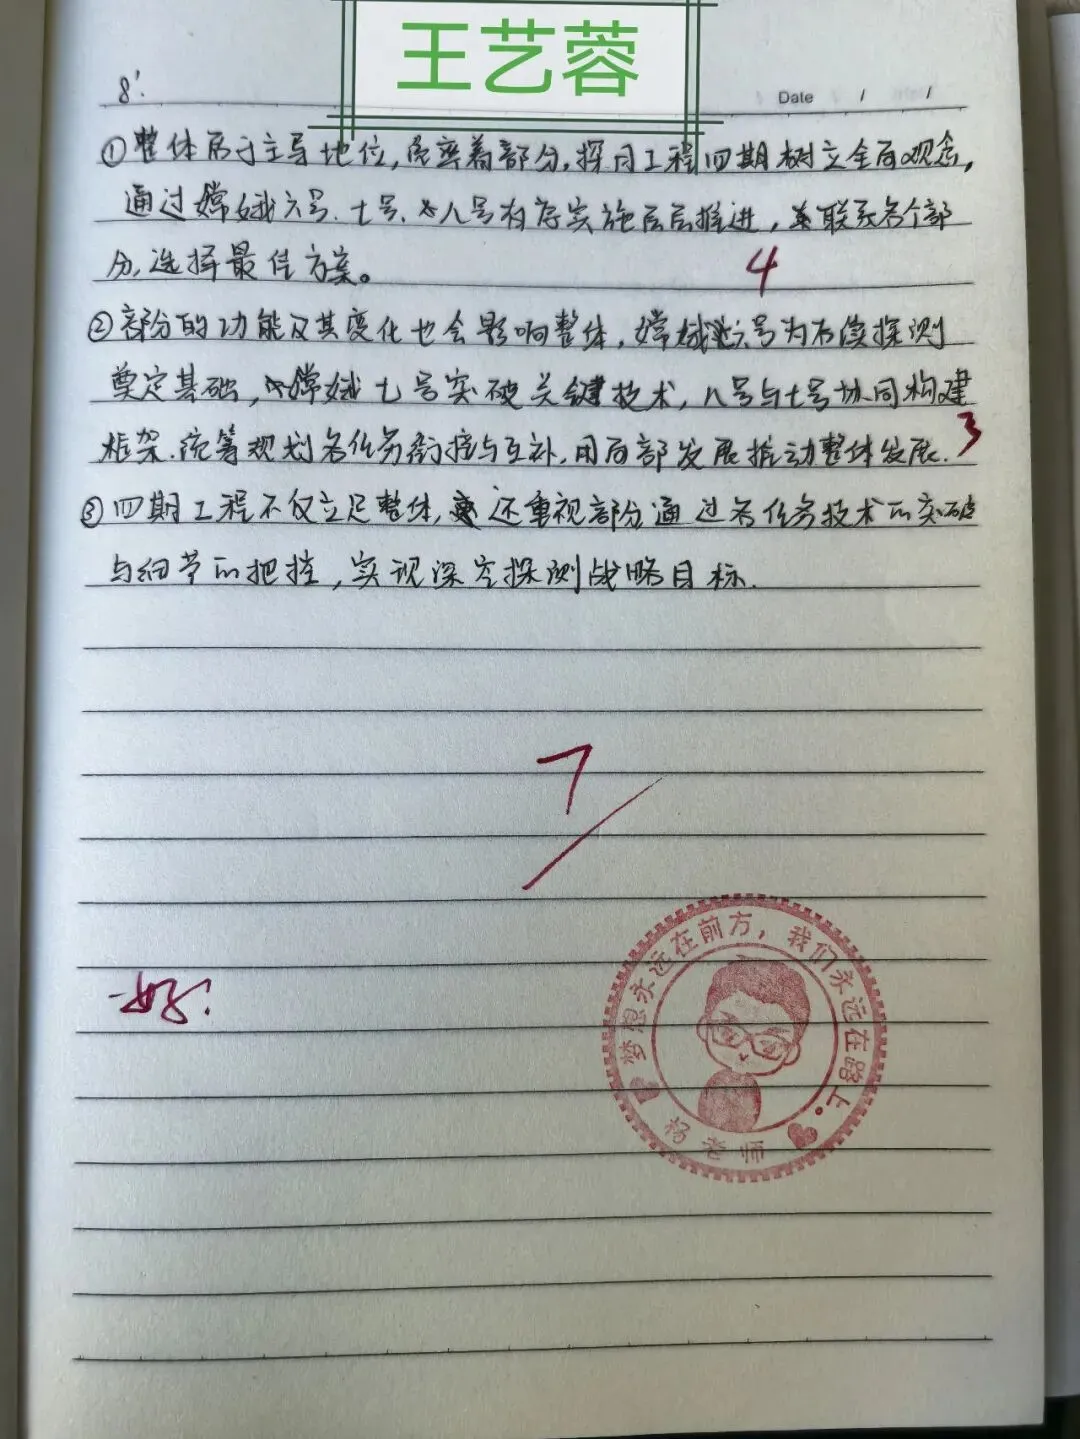 王艺蓉
8'
Date / /
①整体居于主导地位,统率着部分,探月工程四期树立全局观念,
通过嫦娥六号、七号、八号有序实施层层推进,联系各个部
分,选择最佳方案。
4
②部分的功能及其变化也会影响整体,嫦娥六号为后续探测
奠定基础,嫦娥七号突破关键技术,八号与七号协同构建
框架.统筹规划各任务衔接与互补,用局部发展推动整体发展.
3
③四期工程不仅立足整体,还重视部分通过各任务技术的突破
与细节的把控,实现深空探测战略目标.
7
好!
梦想永远在前方,我们永远在路上。
杨老师